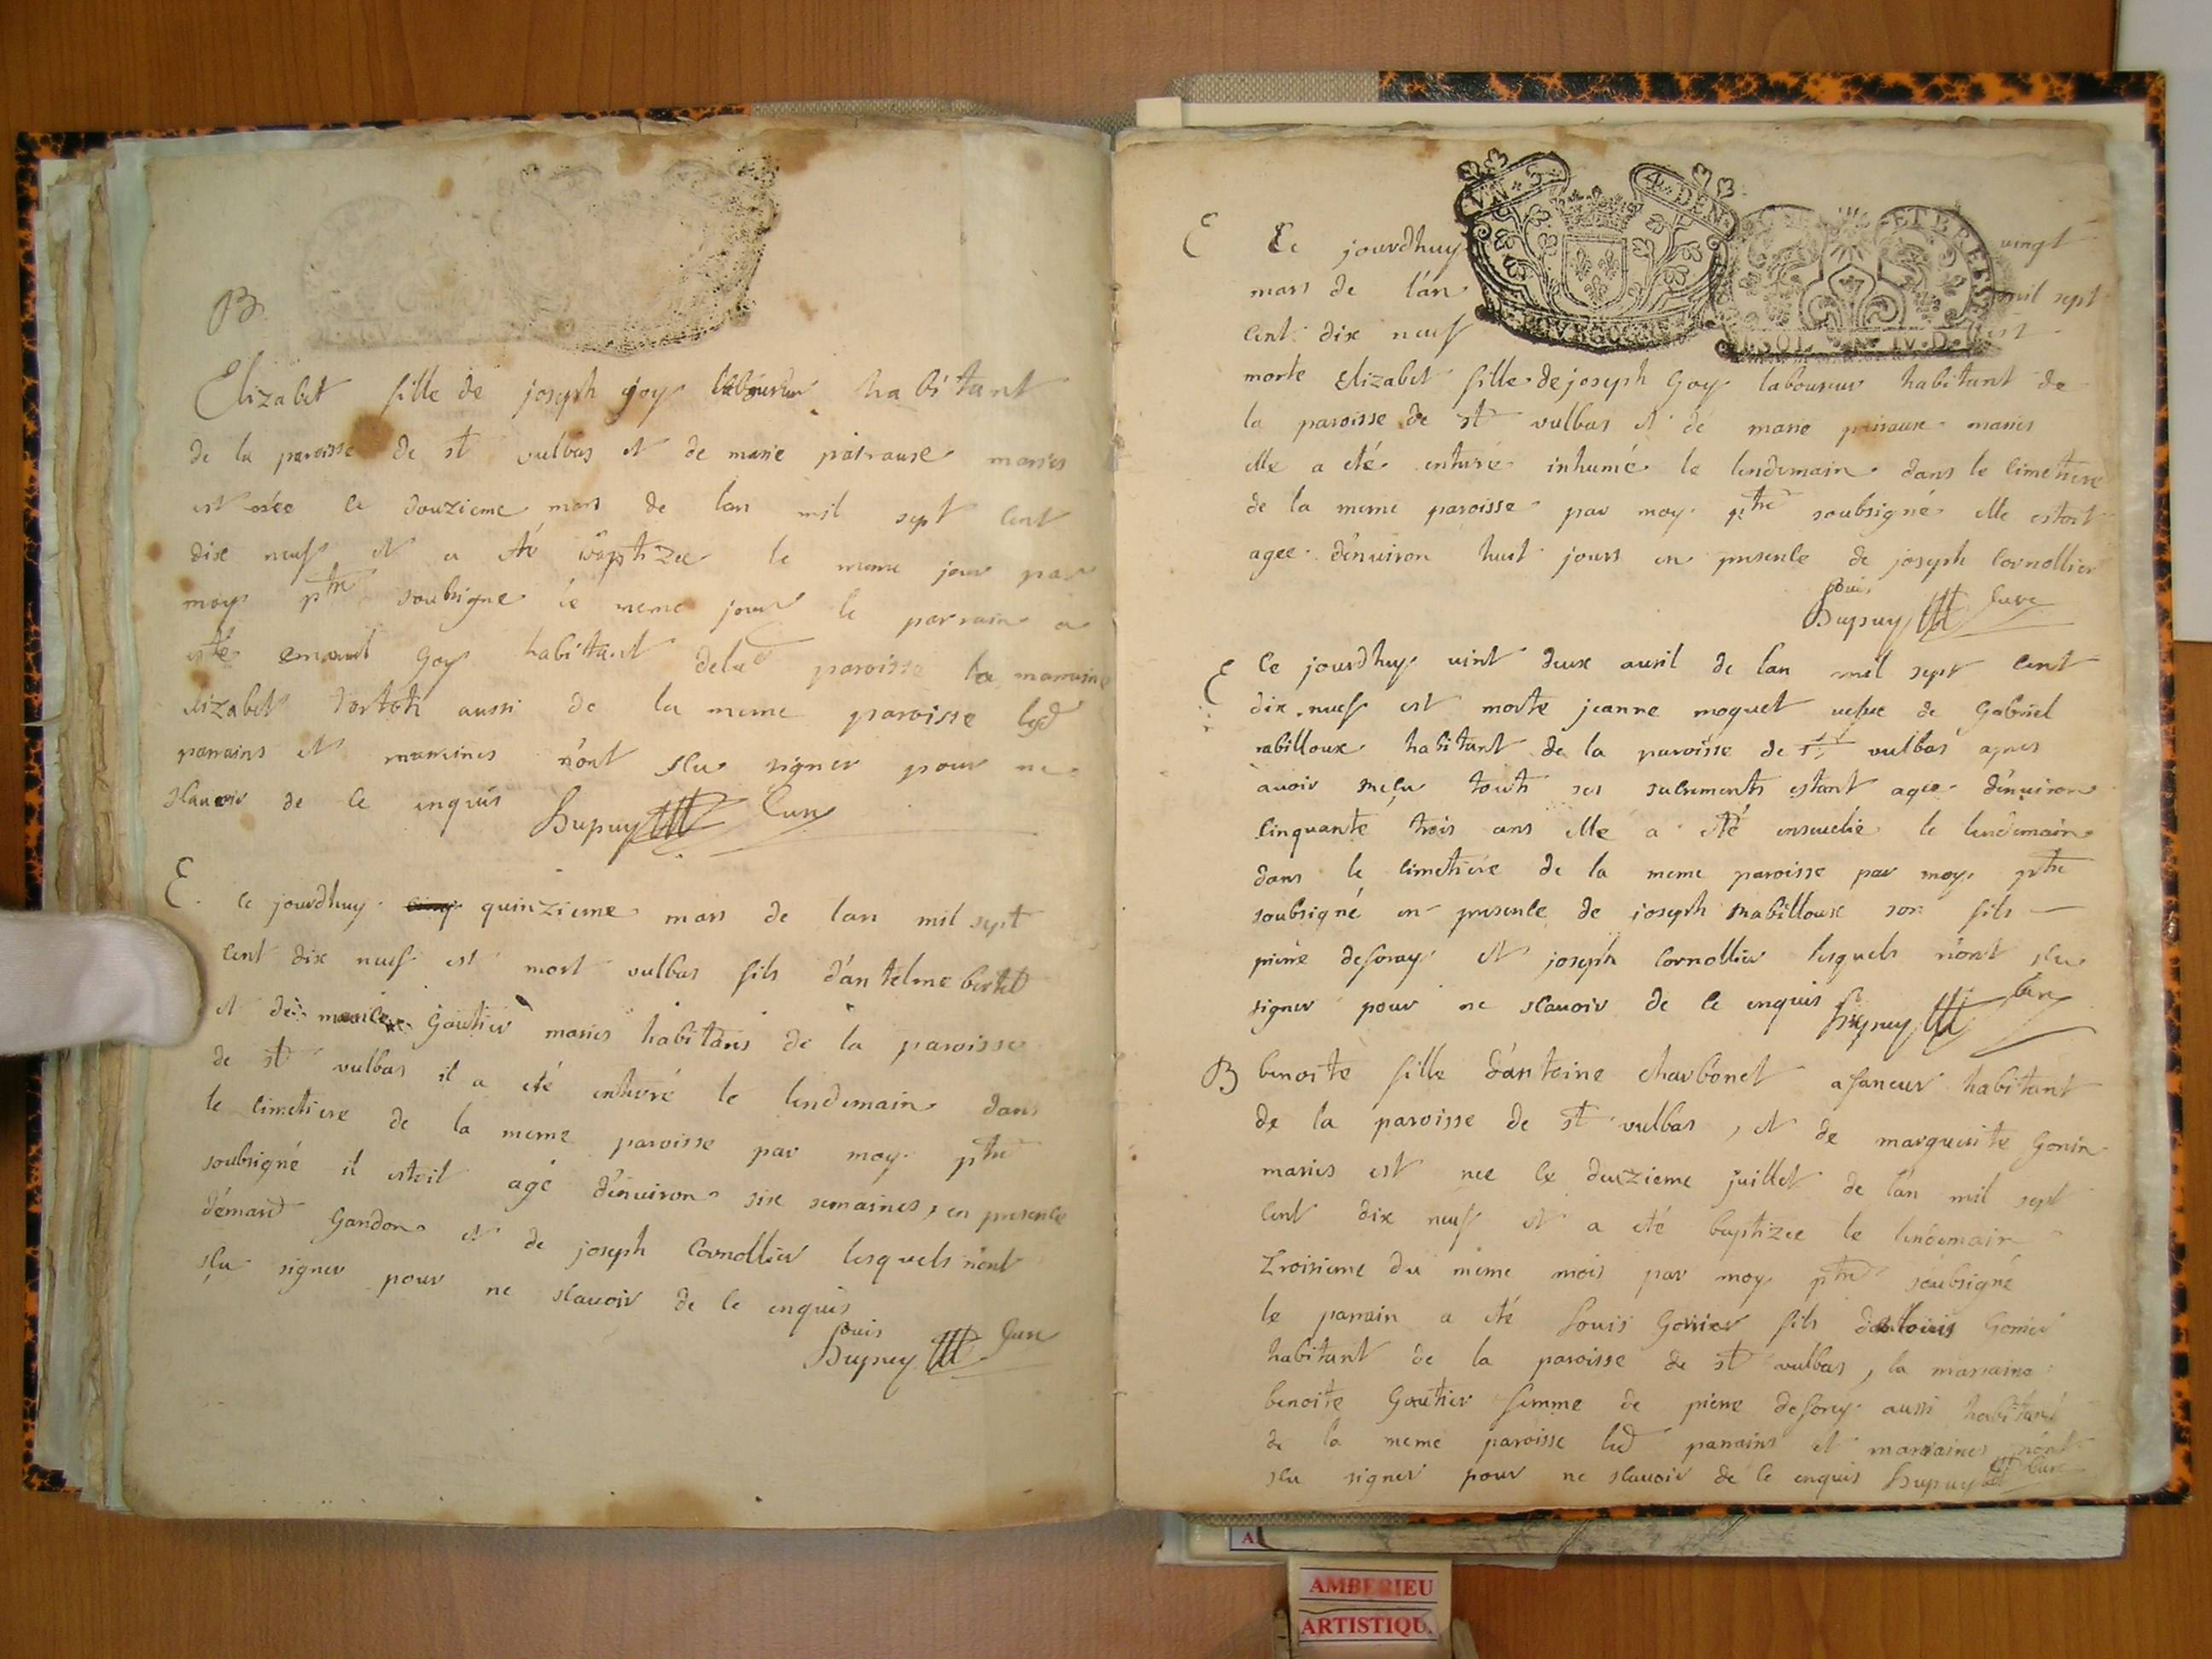 B
Elizabet fille de joseph goy laboureur habitant
de la paroisse de st vulbas et de marie pairause mariés
est née le douzieme mars de lan mil sept cent
dix neuf et a eté baptizee le meme jour par
moy ptre soubsigne le meme jour le parrain a
esté emard Goy habitant delad paroisse la marraine
elizabet aussi de la meme paroisse lesd
parrains et marraines n'ont sceu signer pour ne
scauoir de ce enquis Dupuy Curé
E. Ce jourdhuy quinzieme mars de lan mil sept
cent dix neuf est mort vulbas fils d'antelme bertet
et de Gautier mariés habitans de la paroisse
de st vulbas il a eté enterré le lendemain dans
le cimetiere de la meme paroisse par moy ptre
soubsigné il estoit agé d'enuiron six semaines, en presence
d'emard Gandon et de joseph Cornollier lesquels n'ont
sçu signer pour ne scauoir de ce enquis
Dupuy Curé
E Ce jourdhuy vingt
mars de l'an mil sept
cent dix neuf est
VN S 4 DEN
ET BREBS
BOVRGOGNE
SOL IV.D.
morte Elizabet fille de joseph Goy laboureur habitant de
la paroisse de st vulbas et de marie pairause mariés
elle a eté enterré inhumé le lendemain dans le cimetiere
de la meme paroisse par moy ptre soubsigné elle estoit
agee d'enuiron huit jours en presence de joseph Cornollier
Dupuy Curé
E Ce jourdhuy uint deux auril de lan mil sept cent
dix neuf est morte jeanne moquet uefue de Gabriel
rabilloux habitant de la paroisse de st vulbas apres
auoir reçu touts ses sacrements estant agee d'enuiron
cinquante trois ans elle a eté enseuelie le lendemain
dans le cimetiere de la meme paroisse par moy ptre
soubsigné en presence de joseph rabilloux son fils
pierre deforay et joseph Cornollier lesquels n'ont sceu
signer pour ne scauoir de ce enquis Dupuy Curé
B benoite fille d'antoine charbonet afaneur habitant
de la paroisse de st vulbas, et de marguerite Gonin
mariés est nee le deuzieme juillet de l'an mil sept
cent dix neuf et a eté baptizee le lendemain
troisieme du meme mois par moy ptre soubsigné
le parrain a eté Louis Gonier fils Gonier
habitant de la paroisse de st vulbas, la marraine
benoite Gautier femme de pierre deforey aussi habitant
de la meme paroisse lesd parrains et marraines n'ont
sceu signer pour ne scauoir de ce enquis Dupuy Curé
AMBERIEU
ARTISTIQU